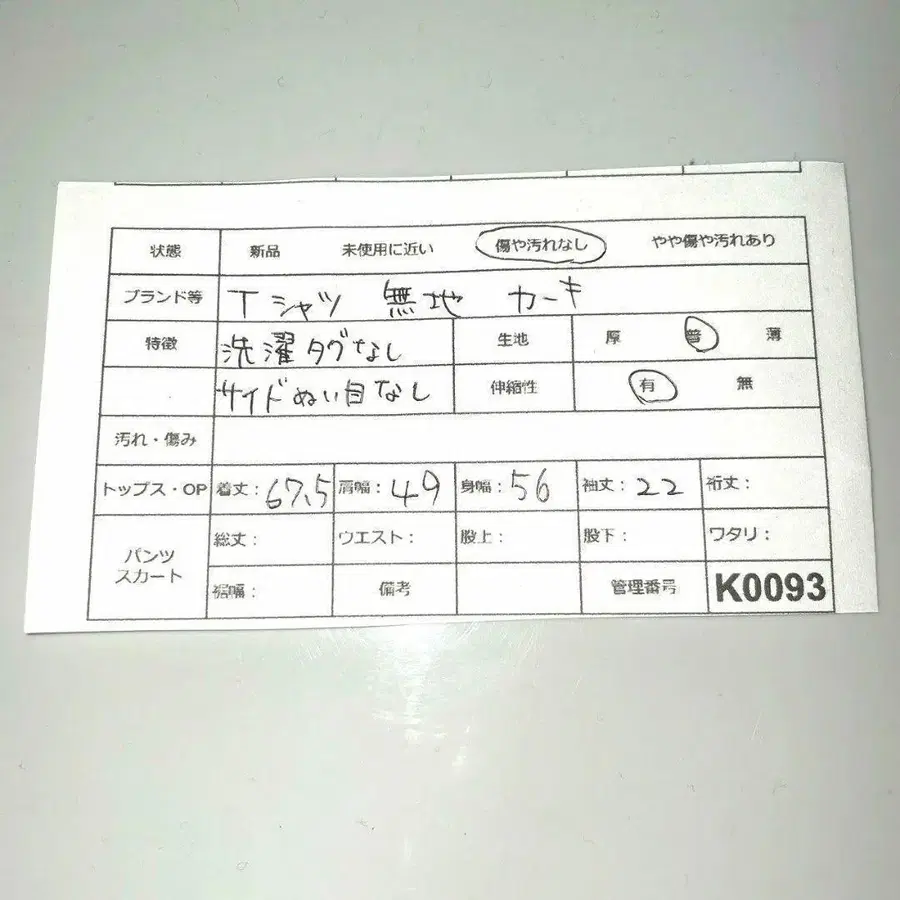 状態 新品 未使用に近い 傷や汚れなし やや傷や汚れあり
ブランド等 Tシャツ 無地 カーキ
特徴 洗濯タグなし 生地 厚 普 薄
サイドぬい目なし 伸縮性 有 無
汚れ・傷み
トップス・OP 着丈:67.5 肩幅:49 身幅:56 袖丈:22 裄丈:
パンツ スカート 総丈: ウエスト: 股上: 股下: ワタリ:
裾幅: 備考 管理番号 K0093